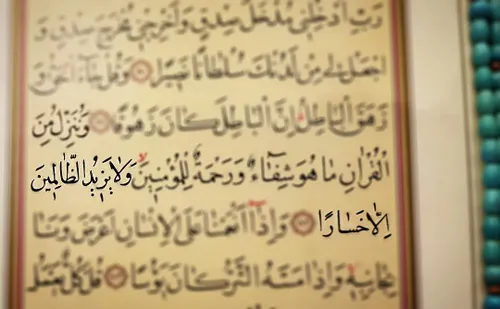 رَبِّ اَدْخِلْنٖى مُدْخَلَ صِدْقٍ وَاَخْرِجْنٖى مُخْرَجَ صِدْقٍ وَ
اجْعَلْ لٖى مِنْ لَدُنْكَ سُلْطَانًا نَصٖيرًا وَقُلْ جَٓاءَ الْحَقُّ وَ
زَهَقَ الْبَاطِلُ اِنَّ الْبَاطِلَ كَانَ زَهُوقًا وَنُنَزِّلُ مِنَ
الْقُرْاٰنِ مَا هُوَ شِفَٓاءٌ وَرَحْمَةٌ لِلْمُؤْمِنٖينَ وَلَا يَزٖيدُ الظَّالِمٖينَ
اِلَّا خَسَارًا وَاِذَٓا اَنْعَمْنَا عَلَى الْاِنْسَانِ اَعْرَضَ وَنَاٰ
بِجَانِبِهٖ وَاِذَا مَسَّهُ الشَّرُّ كَانَ يَؤُسًا قُلْ كُلٌّ يَعْمَلُ